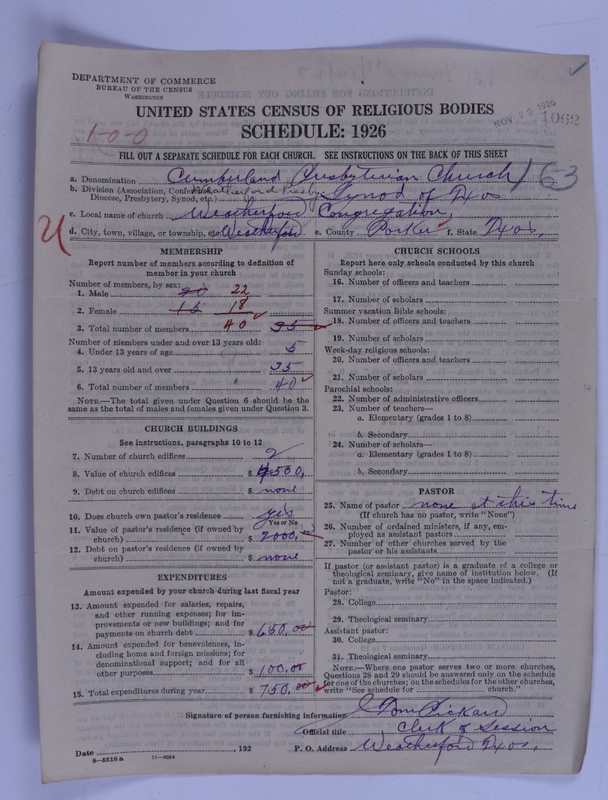 DEPARTMENT OF COMMERCE
BUREAU OF THE CENSUS
WASHINGTON
UNITED STATES CENSUS OF RELIGIOUS BODIES
NOV 20 1926
1062
SCHEDULE: 1926
1-0-0
FILL OUT A SEPARATE SCHEDULE FOR EACH CHURCH. SEE INSTRUCTIONS ON THE BACK OF THIS SHEET
a. Denomination Cumberland Presbyterian Church 163
b. Division (Association, Conference, Weatherford Presby Synod of Texas
Diocese, Presbytery, Synod, etc.)
c. Local name of church Weatherford Congregation,
d. City, town, village, or township, etc. Weatherford e. County Parker f. State Texas,
MEMBERSHIP
Report number of members according to definition of
member in your church
Number of members, by sex:
1. Male 20 22
2. Female 15 18
3. Total number of members 40 35
Number of members under and over 13 years old:
4. Under 13 years of age 5
5. 13 years old and over 35
6. Total number of members 40
NOTE.—The total given under Question 6 should be the
same as the total of males and females given under Question 3.
CHURCH BUILDINGS
See instructions, paragraphs 10 to 12
7. Number of church edifices 2
8. Value of church edifices $ 4500,
9. Debt on church edifices $ none
10. Does church own pastor's residence yes
Yes or No
11. Value of pastor's residence (if owned by
church) $ 2000,00
12. Debt on pastor's residence (if owned by
church) $ none
EXPENDITURES
Amount expended by your church during last fiscal year
13. Amount expended for salaries, repairs,
and other running expenses; for im-
provements or new buildings; and for
payments on church debt $ 650.00
14. Amount expended for benevolences, in-
cluding home and foreign missions; for
denominational support; and for all
other purposes $ 100.00
15. Total expenditures during year $ 750.00
CHURCH SCHOOLS
Report here only schools conducted by this church
Sunday schools:
16. Number of officers and teachers
17. Number of scholars
Summer vacation Bible schools:
18. Number of officers and teachers
19. Number of scholars
Week-day religious schools:
20. Number of officers and teachers
21. Number of scholars
Parochial schools:
22. Number of administrative officers
23. Number of teachers—
a. Elementary (grades 1 to 8)
b. Secondary
24. Number of scholars—
a. Elementary (grades 1 to 8)
b. Secondary
PASTOR
25. Name of pastor none at this time
(If church has no pastor, write "None")
26. Number of ordained ministers, if any, em-
ployed as assistant pastors
27. Number of other churches served by the
pastor or his assistants
If pastor (or assistant pastor) is a graduate of a college or
theological seminary, give name of institution below. (If
not a graduate, write "No" in the space indicated.)
Pastor:
28. College
29. Theological seminary
Assistant pastor:
30. College
31. Theological seminary
NOTE.—Where one pastor serves two or more churches,
Questions 28 and 29 should be answered only on the schedule
for one of the churches; on the schedules for the other churches,
write "See schedule for church."
Signature of person furnishing information Tom Pickard
Official title Clerk of Session
Date , 192 P. O. Address Weatherford Texas,
8-5518a 11-9024